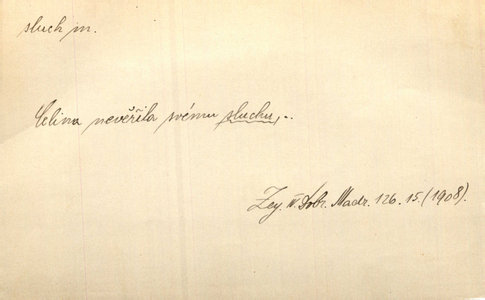 sluch m.
Celina nevěřila svému sluchu,..
Zey. IV. Dobr. Madr. 126. 15. (1908).